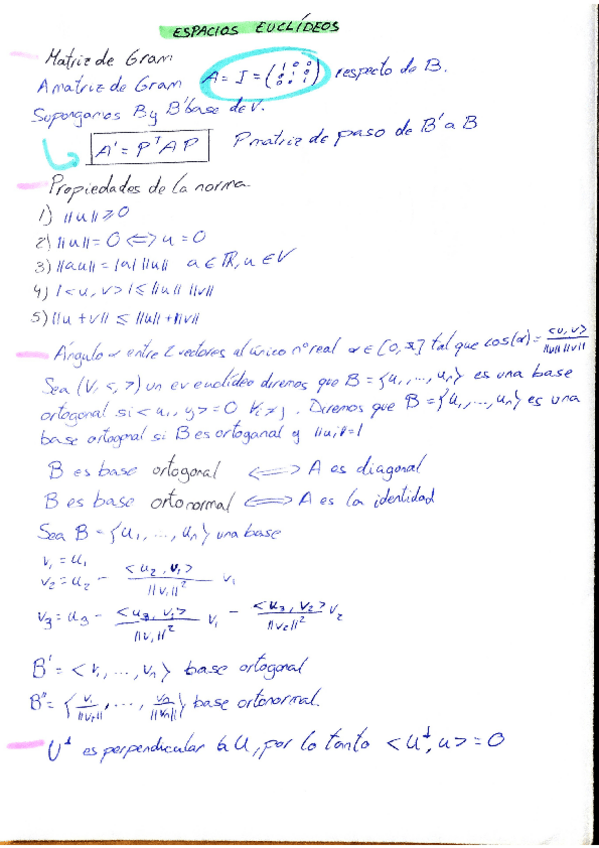 ESPACIOS EUCLÍDEOS
Matriz de Gram
A matriz de Gram A = I = (1 0 0 / 0 1 0 / 0 0 1) respecto de B.
Supongamos B y B' base de V.
A' = PᵗAP P matriz de paso de B' a B
Propiedades de la norma.
1) ||u|| ≥ 0
2) ||u|| = 0 <=> u = 0
3) ||au|| = |a| ||u|| a ∈ ℝ, u ∈ V
4) |<u, v>| ≤ ||u|| ||v||
5) ||u + v|| ≤ ||u|| + ||v||
Ángulo α entre 2 vectores al único nº real α ∈ [0, π] tal que cos(α) = <u, v> / ||u|| ||v||
Sea (V, <, >) un ev euclídeo diremos que B = {u₁, ..., uₙ} es una base
ortogonal si <uᵢ, uⱼ> = 0 ∀i ≠ j. Diremos que B = {u₁, ..., uₙ} es una
base ortogonal si B es ortogonal y ||uᵢ|| = 1
B es base ortogonal <=> A es diagonal
B es base ortonormal <=> A es la identidad
Sea B = {u₁, ..., uₙ} una base
v₁ = u₁
v₂ = u₂ - <u₂, v₁> / ||v₁||² v₁
v₃ = u₃ - <u₃, v₁> / ||v₁||² v₁ - <u₃, v₂> / ||v₂||² v₂
B' = <v₁, ..., vₙ> base ortogonal
B'' = {v₁ / ||v₁||, ..., vₙ / ||vₙ||} base ortonormal.
U⊥ es perpendicular a U, por lo tanto <U⊥, u> = 0